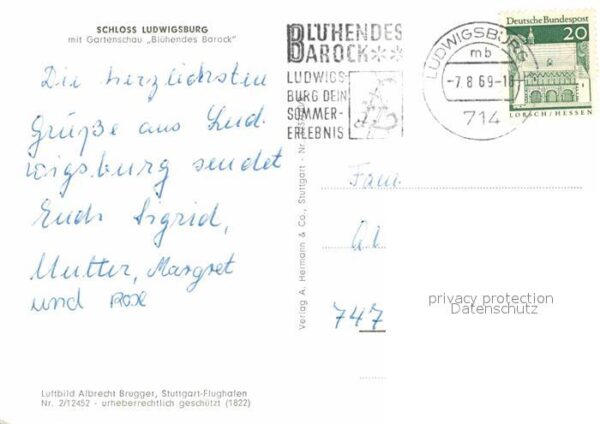 SCHLOSS LUDWIGSBURG
mit Gartenschau „Blühendes Barock"
Die herzlichsten
Grüße aus Lud-
wigsburg sendet
Euch Sigrid,
Mutter, Margret
und
Luftbild Albrecht Brugger, Stuttgart-Flughafen
Nr. 2/12452 - urheberrechtlich geschützt (1822)
Verlag A. Hermann & Co., Stuttgart - Nr.
BLÜHENDES
BAROCK**
LUDWIGS-
BURG DEIN
SOMMER-
ERLEBNIS
LUDWIGSBURG
mb
-7.8.69-18
714
Deutsche Bundespost
20
LORSCH/HESSEN
Fam.
747
privacy protection
Datenschutz